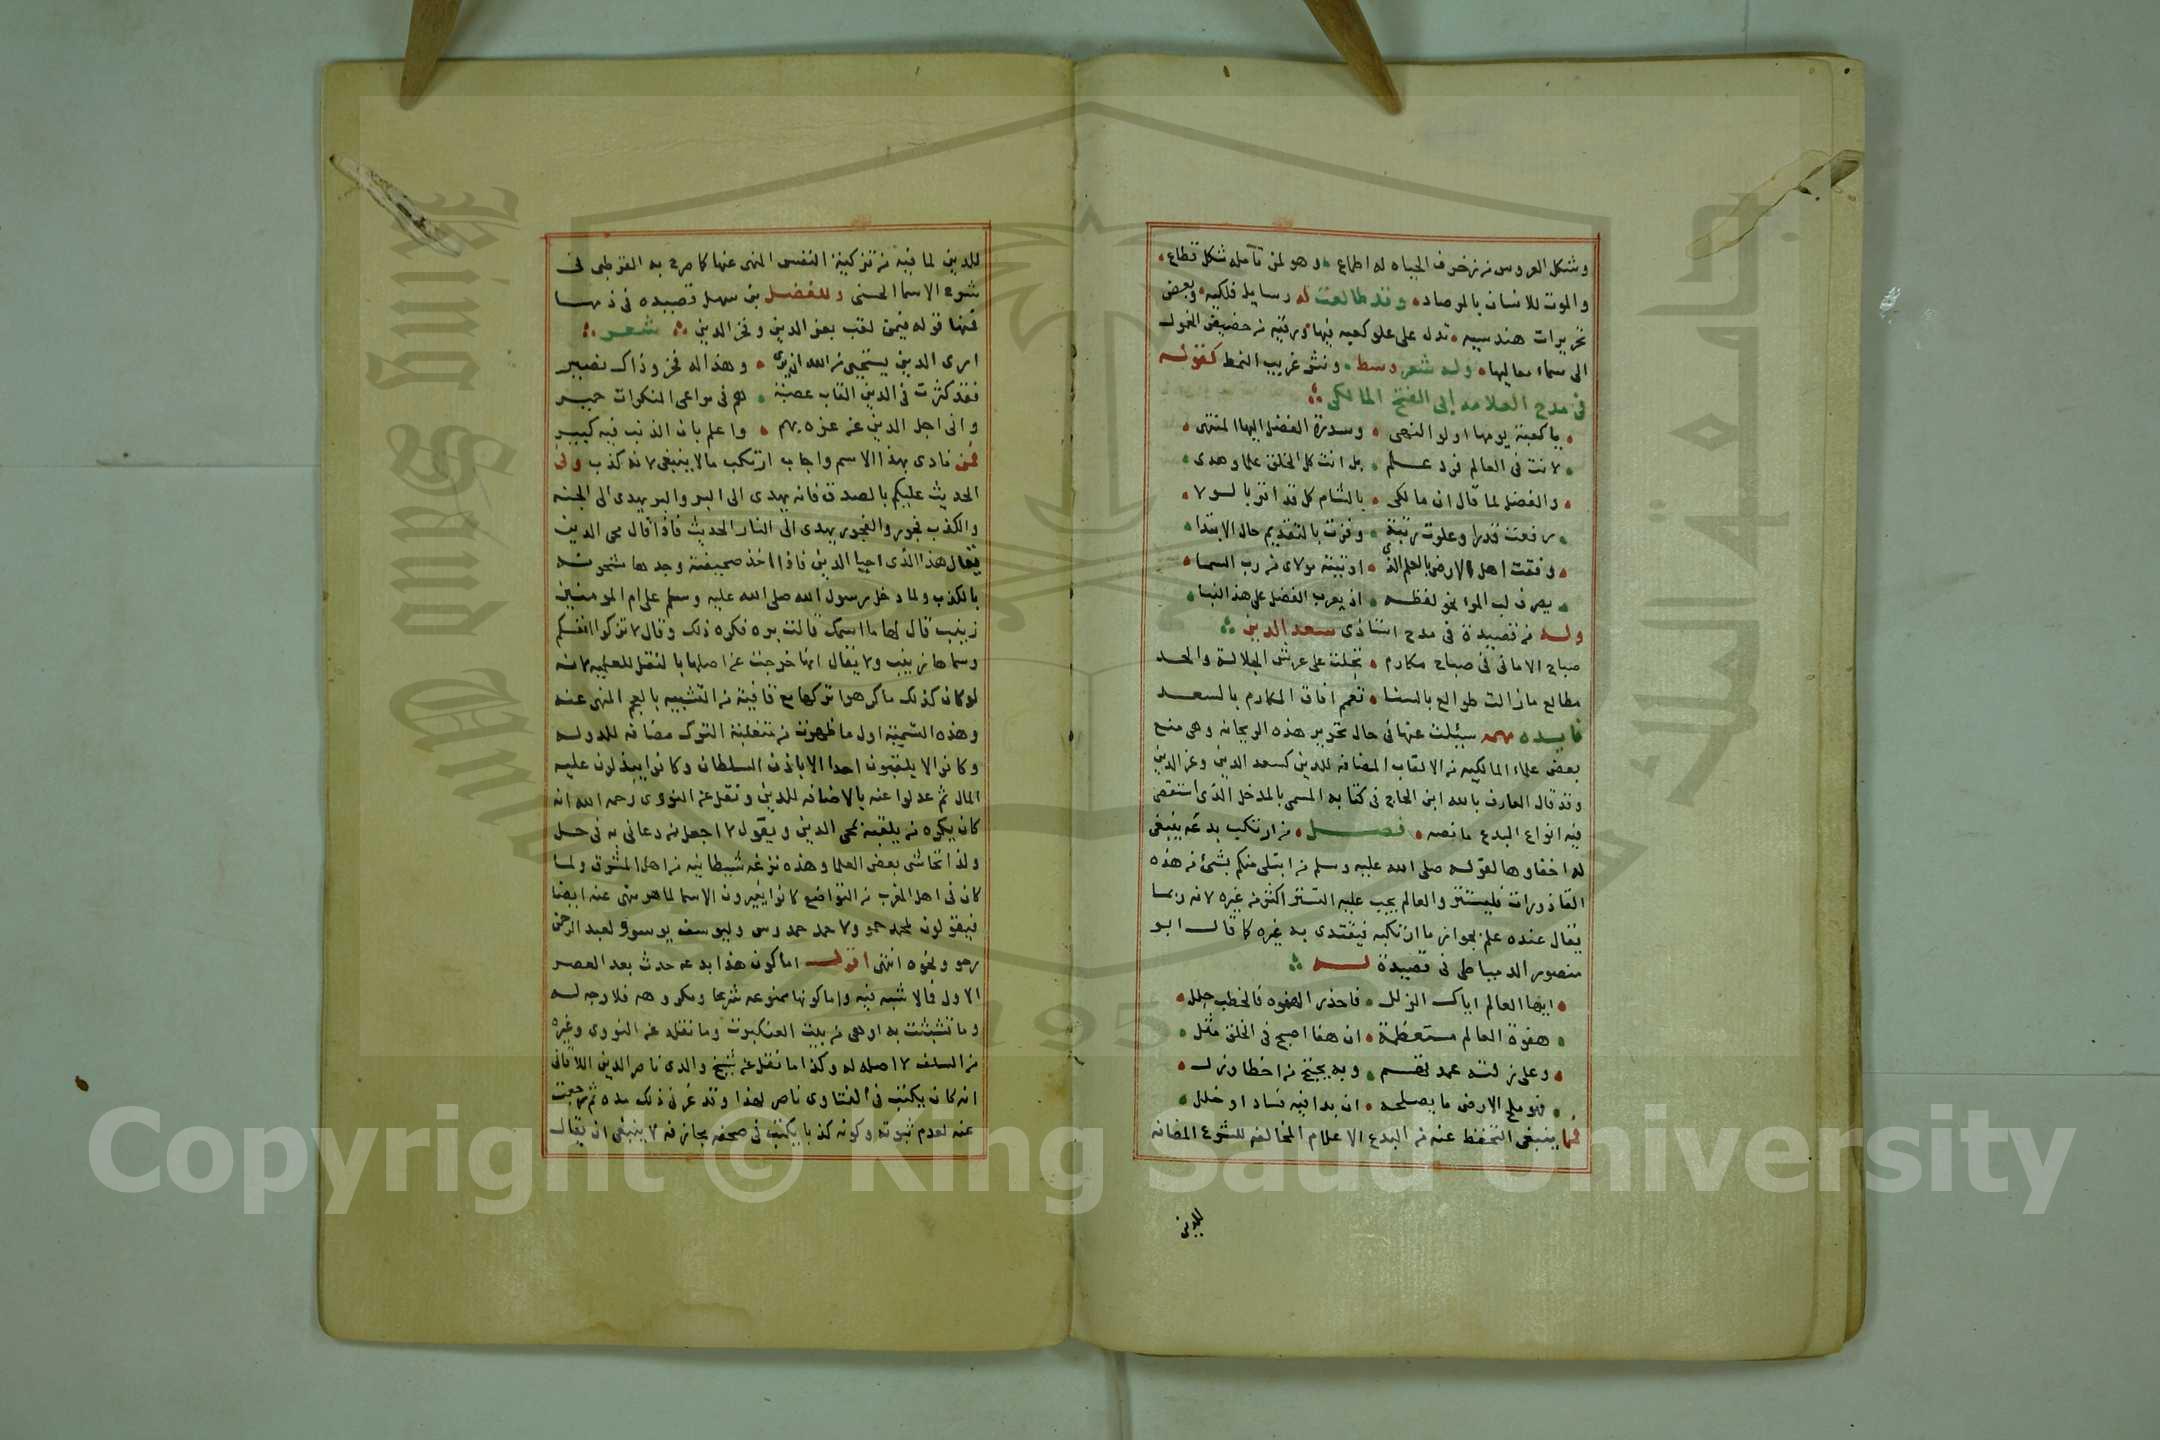 وشكل العروس من زخرف الحياه له اطماع وهو لمن تامله شكل قطاع
والموت للانسان بالمرصاد وقد طالعت له رسايل فلكيه وبعض
تحريرات هندسيه تدل على علو كعبه فيها ورقيه من حضيض الخمول
الى سماء معاليها وله شعر وسط ونثر غريب النمط كقوله
في مدح العلامه ابى الفتح المالكي
يا كعبة يومها اولو النهى وسدرة الفضل اليها المنتهى
لانت في العالم فرد علم بل انت كل الخلق علما وهدى
والفضل لما قال ان مالكي بالشام كل قد اقر بالولا
رفعت قدرا وعلوت رتبة وفزت بالتقديم حال الابتدا
وفقت اهل الارض بالعلم الذي اوتيته مولاي من رب السما
يصرف لب المرا نحو لفظه اذ يعرب الفضل على هذا البنا
وله من قصيدة في مدح استاذي سعد الدين
صباح الاماني في صباح مكارم تجلت على عرش الجلالة والمجد
مطالع مازالت طوالع بالسنا تعم افاق المكارم بالسعد
فايده مهمه سيلت عنها في حال تحرير هذه الريحانه وهي منع
بعض علماء المالكيه من الالقاب المضافه للدين كسعد الدين وعز الدين
وقد قال العارف بالله ابن الحاج في كتابه المسمى بالمدخل الذي استقصى
فيه انواع البدع مانصه فصل من ارتكب بدعه ينبغي
له اخفاوها لقوله صلى الله عليه وسلم من ابتلى منكم بشئ من هذه
القاذورات فليستتر والعالم يجب عليه التستر اكثر من غيره لانه ربما
يقال عنده علم بجواز ما ارتكبه فيقتدى به غيره كما قال ابو
منصور الدمياطي في قصيدة له
ايها العالم اياك الزلل فاحذر الهفوه فالخطب جلل
هفوة العالم مستعظمة ان هفا اصبح في الخلق مثل
وعلى زلته عمدتهم وبه يحتج من اخطا وزل
فهو ملح الارض ما يصلحه ان بدا فيه فساد او خلل
فمما ينبغي التحفظ عنه من البدع الاعلام المخالفه للشرع المضافه
للدين
للدين لما فيه من تزكية النفس المنهى عنها كما صرح به القرطبي في
شرح الاسما الحسنى وللفضل بن سهل قصيده في ذمها
فمنها قوله فيمن لقب بعز الدين وفخر الدين شعر
ارى الدين يستحيي من الله ان يرى وهذا له فخر وذاك نصير
فقد كثرت في الدين القاب عصبة هم في مراعي المنكرات حمير
واني اجل الدين عن عزه بهم واعلم بان الذنب فيه كبير
فمن نادى بهذا الاسم واجاب ارتكب مالا ينبغي لانه كذب وفي
الحديث عليكم بالصدق فانه يهدى الى البر والبر يهدى الى الجنه
والكذب فجور والفجور يهدى الى النار الحديث فاذا قال محى الدين
يقال هذا الذى احيا الدين فاذا اخذ صحيفته وجدها مشحونة
بالكذب ولما دخل رسول الله صلى الله عليه وسلم على ام المومنين
زينب قال لها ما اسمك قالت بره فكره ذلك وقال لا تزكوا انفسكم
وسماها زينب ولا يقال انها خرجت عن اصلها بالنقل للعلميه لانه
لو كان كذلك ماكرهوا تركها مع قافية من التشبيه بالعجم المنهى عنه
وهذه التسمية اول ما ظهرت من متغلبة الترك مضافه للدوله
وكانوا لا يلقبون احدا الا باذن السلطان وكانوا يبذلون عليه
المال ثم عدلوا عنه بالاضافه للدين ونقل عن النووى رحمه الله انه
كان يكره من يلقبه بمحى الدين ويقول لا اجعل من دعانى به في حل
ولذا تحاشى بعض العلما وهذه نزغه شيطانيه من اهل المشرق ولما
كان في اهل المغرب من التواضع كانوا يغيرون الاسما لما هو منهى عنه ايضا
فيقولون لمحمد حمو ولاحمد حمدوس وليوسف يوسو ولعبد الرحمن
رحو ونحوه انتهى اقول اما كون هذا بدعه حدث بعد العصر
الاول فلا شبه فيه واما كونها ممنوعه شرعا ومكروهه فلا وجه له
وما تشبثت به اوهى من بيت العنكبوت وما نقله عن النووى وغيره
من السلف لا اصل له وكذا ما نقل عن شيخ والدى ناصر الدين اللاقانى
انه كان يكتب في الفتاوى ناصر لهذا وقد غرنى ذلك مده ثم رجعت
عنه لعدم ثبوته وكونه كذبا يكتب في صحفه مجازفه لا ينبغى ان يقال
Copyright © King Saud University